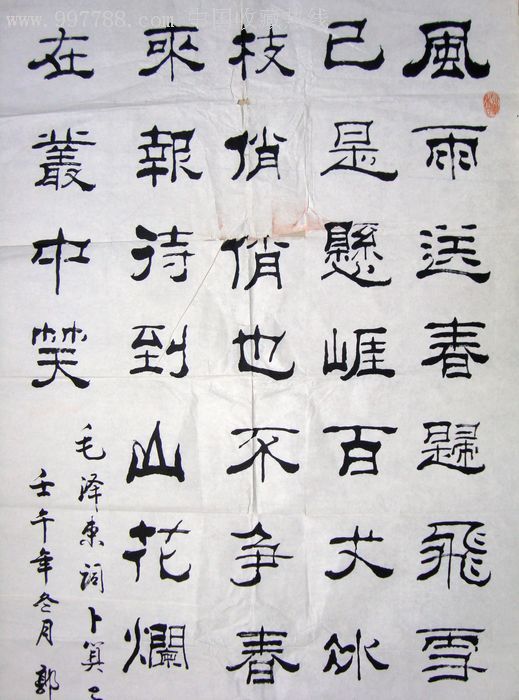 www.997788.com 中国收藏热线
風雨送春歸飛雪
已是懸崕百丈冰
枝俏俏也不争春
來報待到山花爛
在叢中笑
毛泽東词卜算
壬午年冬月郭